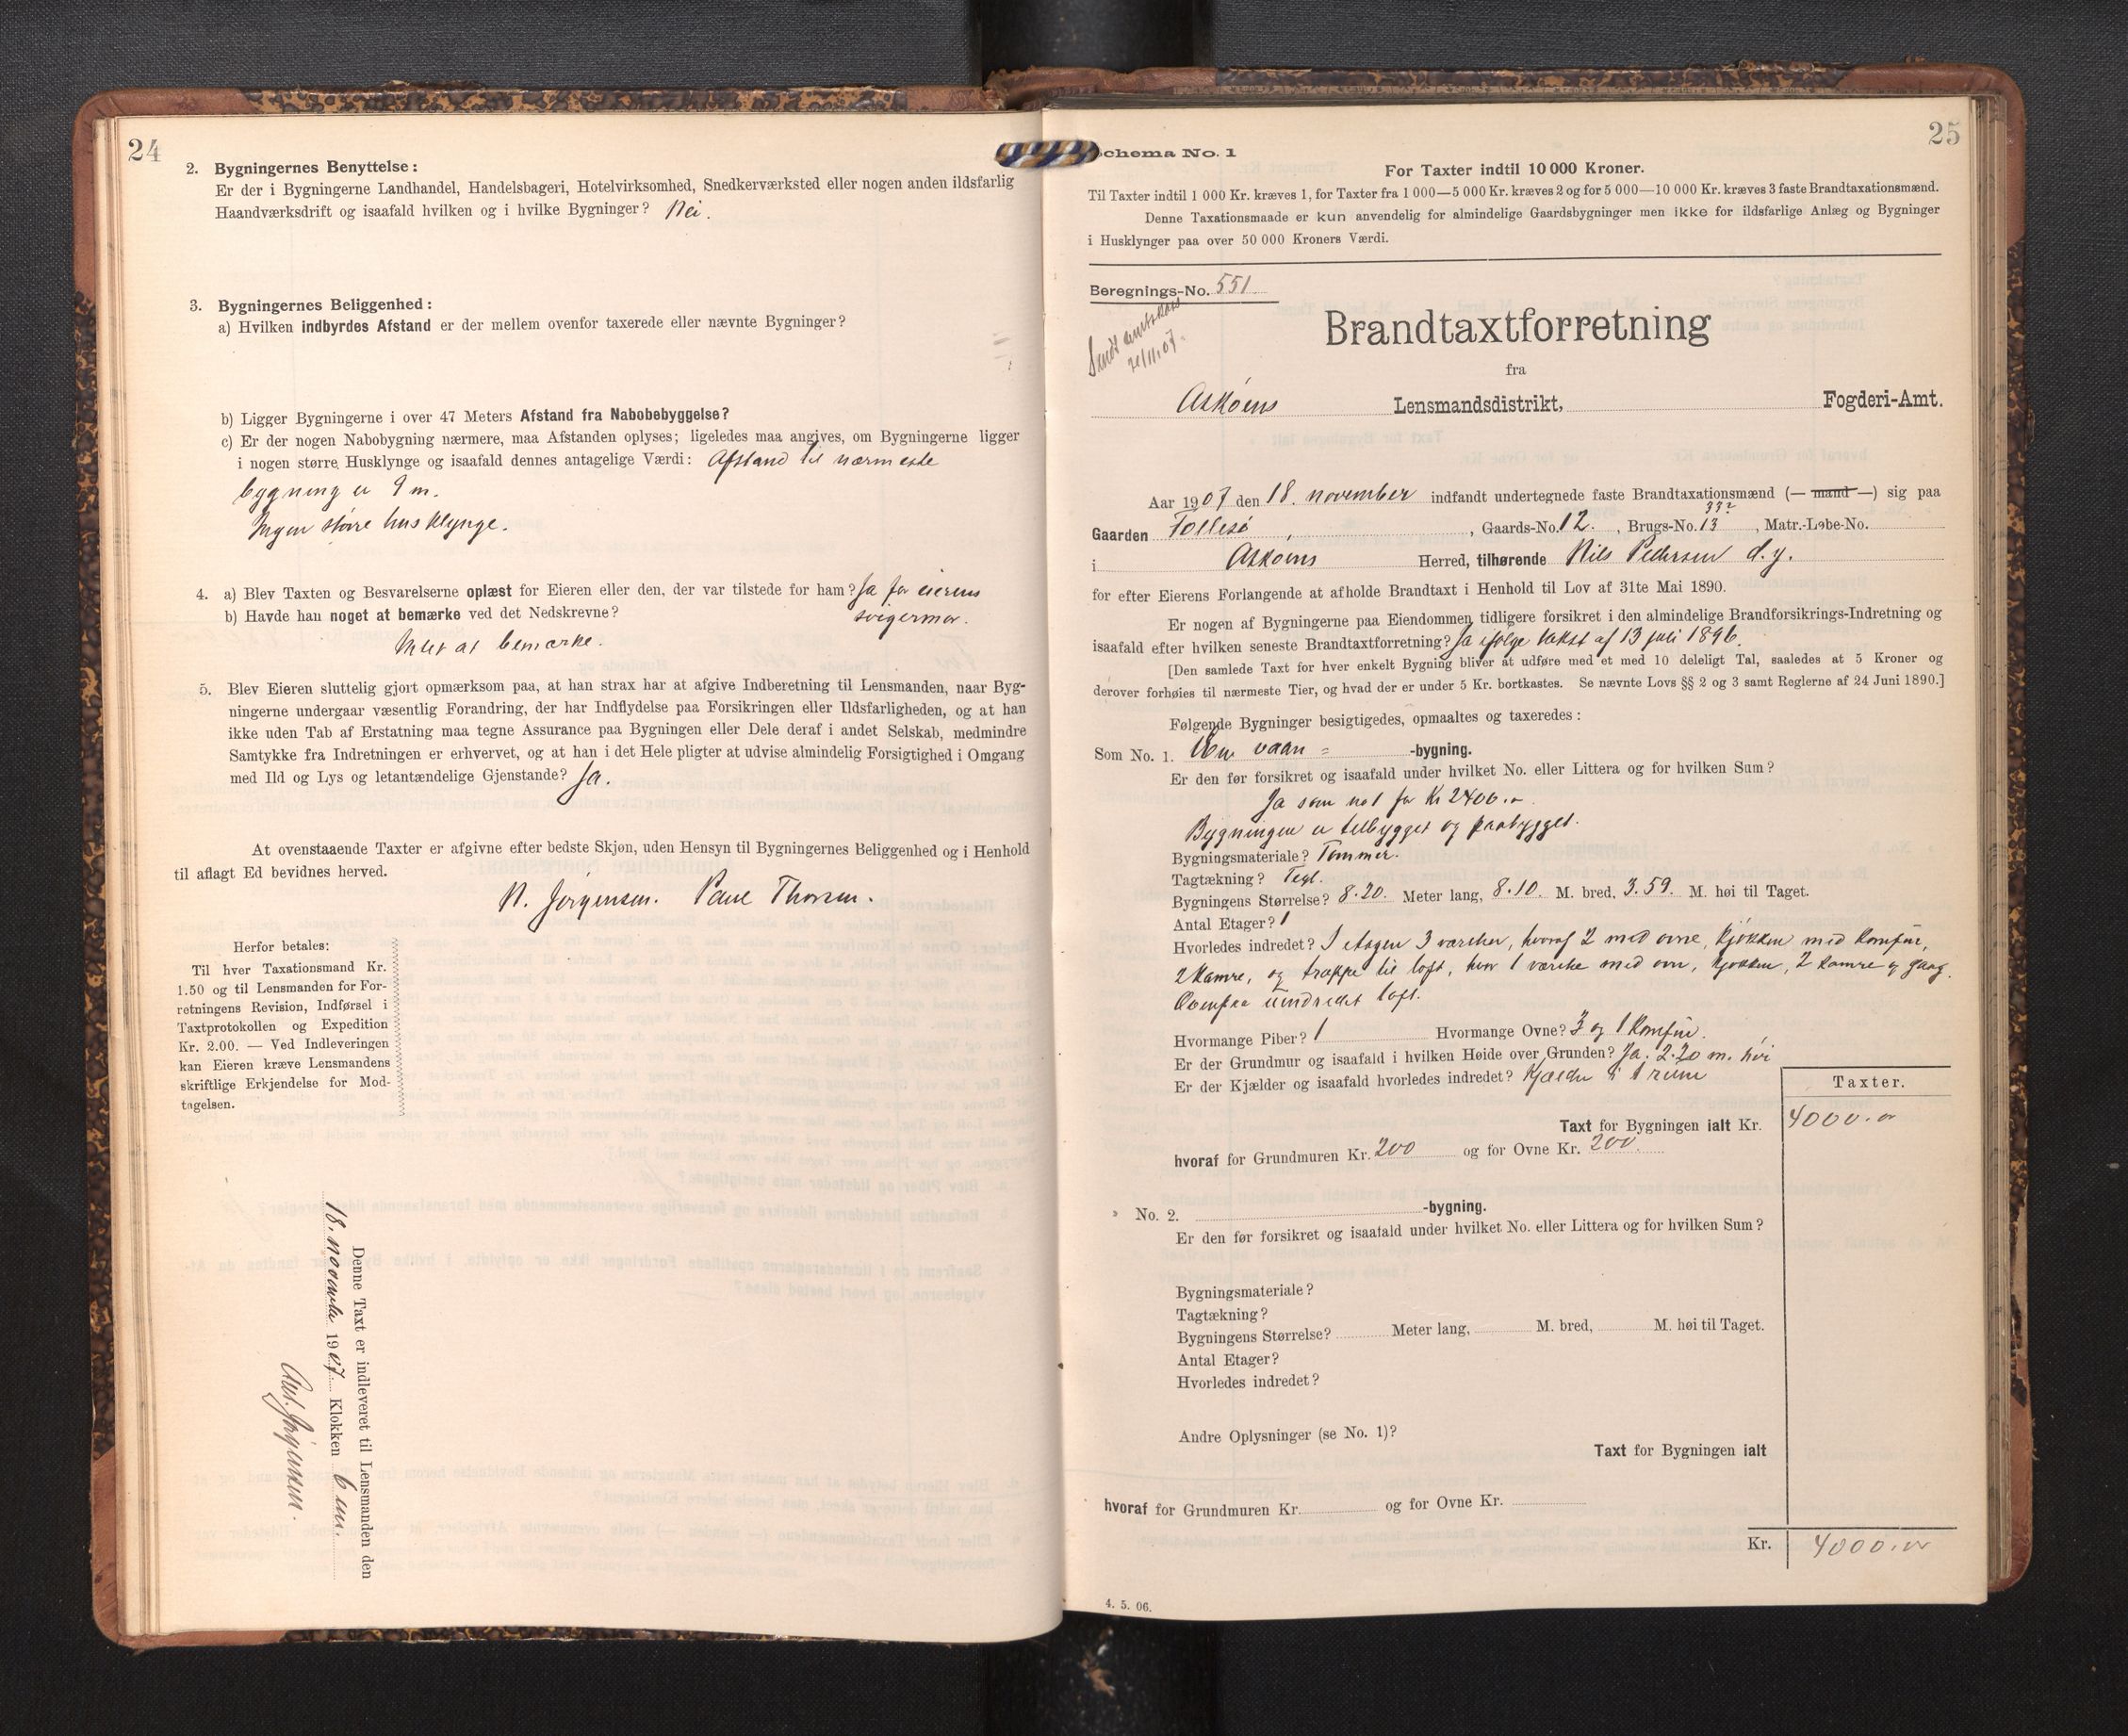 24
2. Bygningernes Benyttelse:
Er der i Bygningerne Landhandel, Handelsbageri, Hotelvirksomhed, Snedkerværksted eller nogen anden ildsfarlig
Haandværksdrift og isaafald hvilken og i hvilke Bygninger? Nei.
3. Bygningernes Beliggenhed:
a) Hvilken indbyrdes Afstand er der mellem ovenfor taxerede eller nævnte Bygninger?
b) Ligger Bygningerne i over 47 Meters Afstand fra Nabobebyggelse?
c) Er der nogen Nabobygning nærmere, maa Afstanden oplyses; ligeledes maa angives, om Bygningerne ligger
i nogen større Husklynge og isaafald dennes antagelige Værdi: Afstand til nærmeste
bygning er 9 m.
Ingen større husklynge.
4. a) Blev Taxten og Besvarelserne oplæst for Eieren eller den, der var tilstede for ham? Ja for eierens
svigermor.
b) Havde han noget at bemærke ved det Nedskrevne?
Intet at bemærke.
5. Blev Eieren sluttelig gjort opmærksom paa, at han strax har at afgive Indberetning til Lensmanden, naar Byg-
ningerne undergaar væsentlig Forandring, der har Indflydelse paa Forsikringen eller Ildsfarligheden, og at han
ikke uden Tab af Erstatning maa tegne Assurance paa Bygningen eller Dele deraf i andet Selskab, medmindre
Samtykke fra Indretningen er erhvervet, og at han i det Hele pligter at udvise almindelig Forsigtighed i Omgang
med Ild og Lys og letantændelige Gjenstande? Ja.
At ovenstaaende Taxter er afgivne efter bedste Skjøn, uden Hensyn til Bygningernes Beliggenhed og i Henhold
til aflagt Ed bevidnes herved.
N. Jørgensen. Paul Thorsen.
Herfor betales:
Til hver Taxationsmand Kr.
1.50 og til Lensmanden for For-
retningens Revision, Indførsel i
Taxtprotokollen og Expedition
Kr. 2.00. — Ved Indleveringen
kan Eieren kræve Lensmandens
skriftlige Erkjendelse for Mod-
tagelsen.
Denne Taxt er indleveret til Lensmanden den
18. november 1907. Klokken 6 em.
Jørgensen.
25
Schema No. 1
For Taxter indtil 10 000 Kroner.
Til Taxter indtil 1 000 Kr. kræves 1, for Taxter fra 1 000—5 000 Kr. kræves 2 og for 5 000—10 000 Kr. kræves 3 faste Brandtaxationsmænd.
Denne Taxationsmaade er kun anvendelig for almindelige Gaardsbygninger men ikke for ildsfarlige Anlæg og Bygninger
i Husklynger paa over 50 000 Kroners Værdi.
Beregnings-No. 551
Sendt amtskas
21/11.07.
Brandtaxtforretning
fra
Askøens Lensmandsdistrikt, Fogderi-Amt.
Aar 1907 den 18. november indfandt undertegnede faste Brandtaxationsmænd (— mand —) sig paa
Gaarden Follesø, Gaards-No. 12., Brugs-No. 13, Matr.-Løbe-No.
i Askøens Herred, tilhørende Nils Pedersen d.y.
for efter Eierens Forlangende at afholde Brandtaxt i Henhold til Lov af 31te Mai 1890.
Er nogen af Bygningerne paa Eiendommen tidligere forsikret i den almindelige Brandforsikrings-Indretning og
isaafald efter hvilken seneste Brandtaxtforretning? Ja ifølge takst af 13 juli 1896.
[Den samlede Taxt for hver enkelt Bygning bliver at udføre med et med 10 deleligt Tal, saaledes at 5 Kroner og
derover forhøies til nærmeste Tier, og hvad der er under 5 Kr. bortkastes. Se nævnte Lovs §§ 2 og 3 samt Reglerne af 24 Juni 1890.]
Følgende Bygninger besigtigedes, opmaaltes og taxeredes:
Som No. 1. En vaan= -bygning.
Er den før forsikret og isaafald under hvilket No. eller Littera og for hvilken Sum?
Ja som no 1 for Kr 2400.
Bygningen er tilbygget og paabygget.
Bygningsmateriale? Tømmer.
Tagtækning? Tegl.
Bygningens Størrelse? 8.20. Meter lang, 8.10. M. bred, 3.59. M. høi til Taget.
Antal Etager? 1
Hvorledes indredet? I etagen 3 værelser, hvoraf 2 med ovne, kjøkken med komfür,
2 kamre, og trappe til loft, hvor 1 værelse med ovn, kjøkken, 2 kamre og gang.
Ovenpaa uindredet loft.
Hvormange Piber? 1 Hvormange Ovne? 3 og 1 komfür.
Er der Grundmur og isaafald i hvilken Høide over Grunden? Ja. 2.20 m. høi
Er der Kjælder og isaafald hvorledes indredet? Kjælder i 1 rum
Taxter.
Taxt for Bygningen ialt Kr. 4000.
hvoraf for Grundmuren Kr. 200 og for Ovne Kr. 200.
No. 2. -bygning.
Er den før forsikret og isaafald under hvilket No. eller Littera og for hvilken Sum?
Bygningsmateriale?
Tagtækning?
Bygningens Størrelse? Meter lang, M. bred, M. høi til Taget.
Antal Etager?
Hvorledes indredet?
Andre Oplysninger (se No. 1)?
Taxt for Bygningen ialt
hvoraf for Grundmuren Kr. og for Ovne Kr.
Kr. 4000.
4. 5. 06.